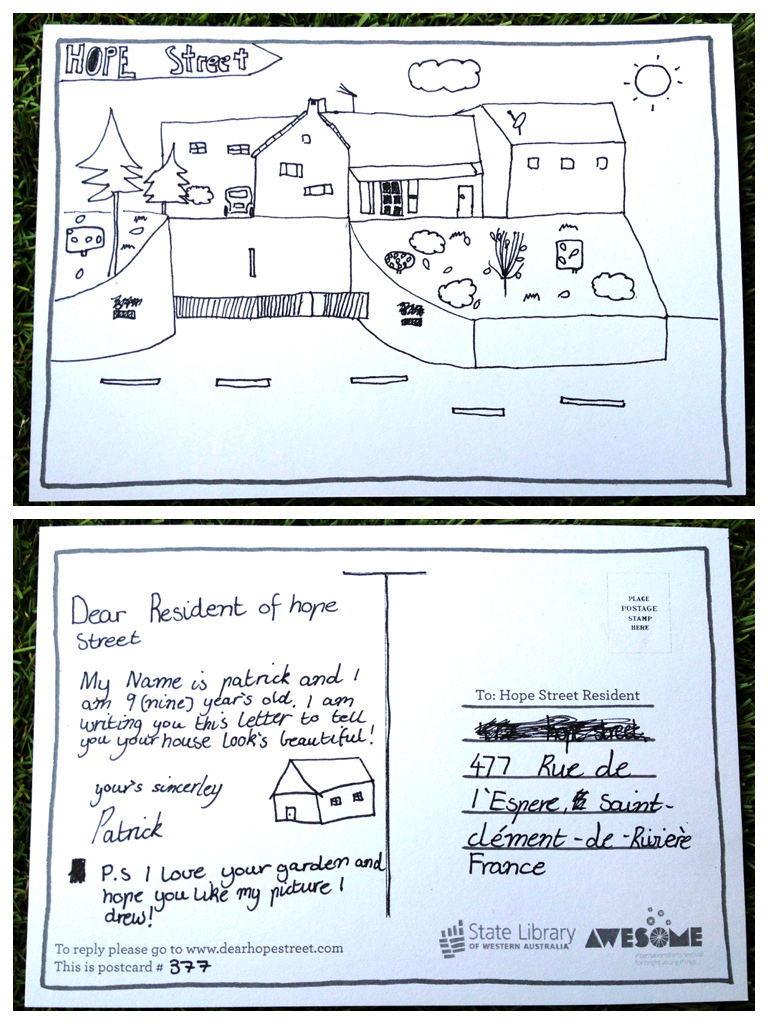 HOPE Street
Dear Resident of hope
Street
My Name is patrick and I
am 9 (nine) year's old. I am
writing you this letter to tell
you your house look's beautiful!
your's sincerley
Patrick
P.s I love your garden and
hope you like my picture I
drew!
To reply please go to www.dearhopestreet.com
This is postcard # 377
PLACE
POSTAGE
STAMP
HERE
To: Hope Street Resident
hope street
477 Rue de
l'Espere, Saint-
clément-de-Rivière
France
State Library
OF WESTERN AUSTRALIA
AWESOME